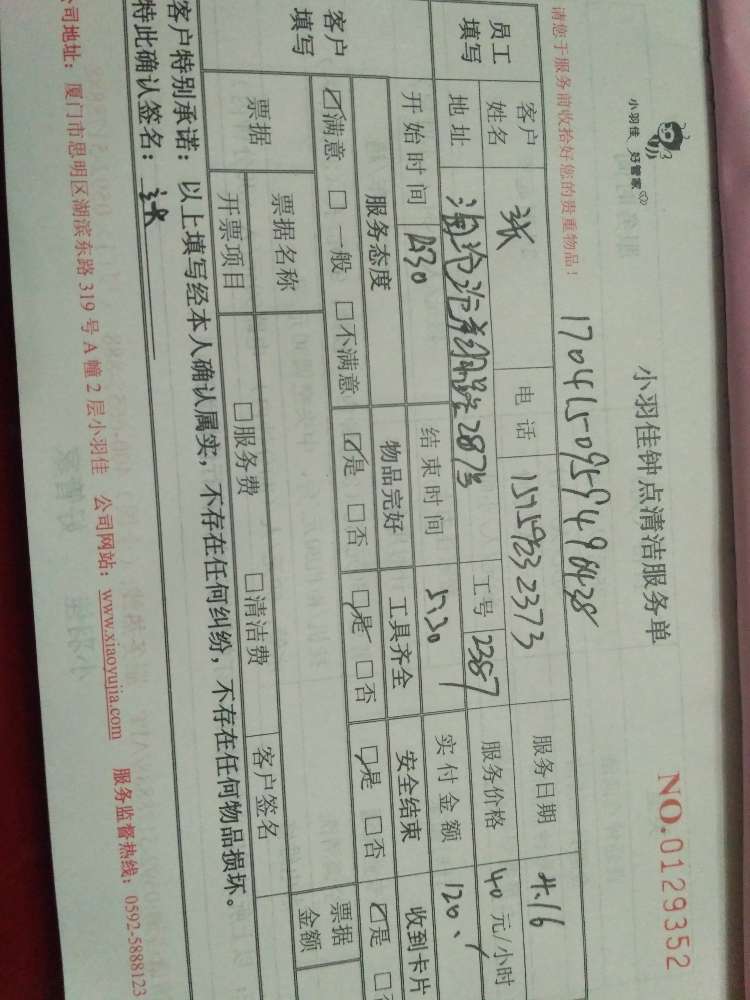 小羽佳 好管家
小羽佳钟点清洁服务单
NO.0129352
请您于服务前收拾好您的贵重物品!
员工填写
客户姓名 张 电话 15759232373 服务日期 4.16
地址 287号 工号 2387 服务价格 40 元/小时
客户填写
开始时间 2:30 结束时间 5:30 实付金额 120.
服务态度 物品完好 工具齐全 安全结束 收到卡片
☑满意 □一般 □不满意 ☑是 □否 ☑是 □否 ☑是 □否 ☑是 □否
票据 票据名称 票据金额
开票项目 □服务费 □清洁费 客户签名
客户特别承诺：以上填写经本人确认属实，不存在任何纠纷，不存在任何物品损坏。
特此确认签名：张
公司地址：厦门市思明区湖滨东路 319 号 A 幢 2 层小羽佳 公司网站：www.xiaoyujia.com 服务监督热线：0592-5888123